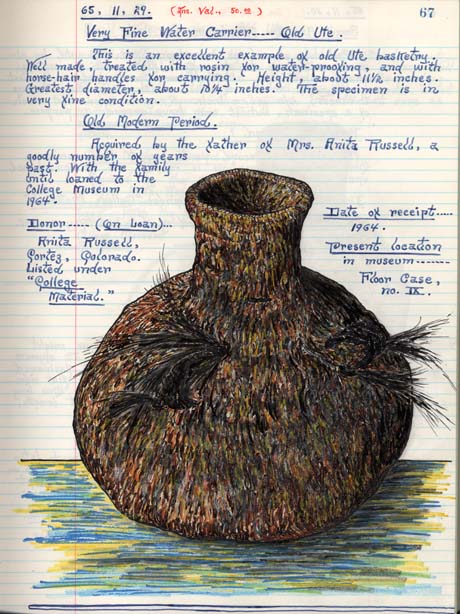 65, 11, 29. (Ins. Val., 50.00) 67
Very Fine Water Carrier----- Old Ute.
This is an excellent example of old Ute basketry.
Well made, treated with rosin for water-proofing, and with
horse-hair handles for carrying. Height, about 11½ inches.
Greatest diameter, about inches. The specimen is in
very fine condition.
Old Modern Period.
Acquired by the father of Mrs. Anita Russell, a
goodly number of years
past. With the family
until loaned to the
College Museum in
1964.
Donor----- (On Loan)...
Anita Russell,
Cortez, Colorado.
Listed under
"College
Material."
Date of receipt.....
1964.
Present location
in museum--------
Floor Case,
no. IX.